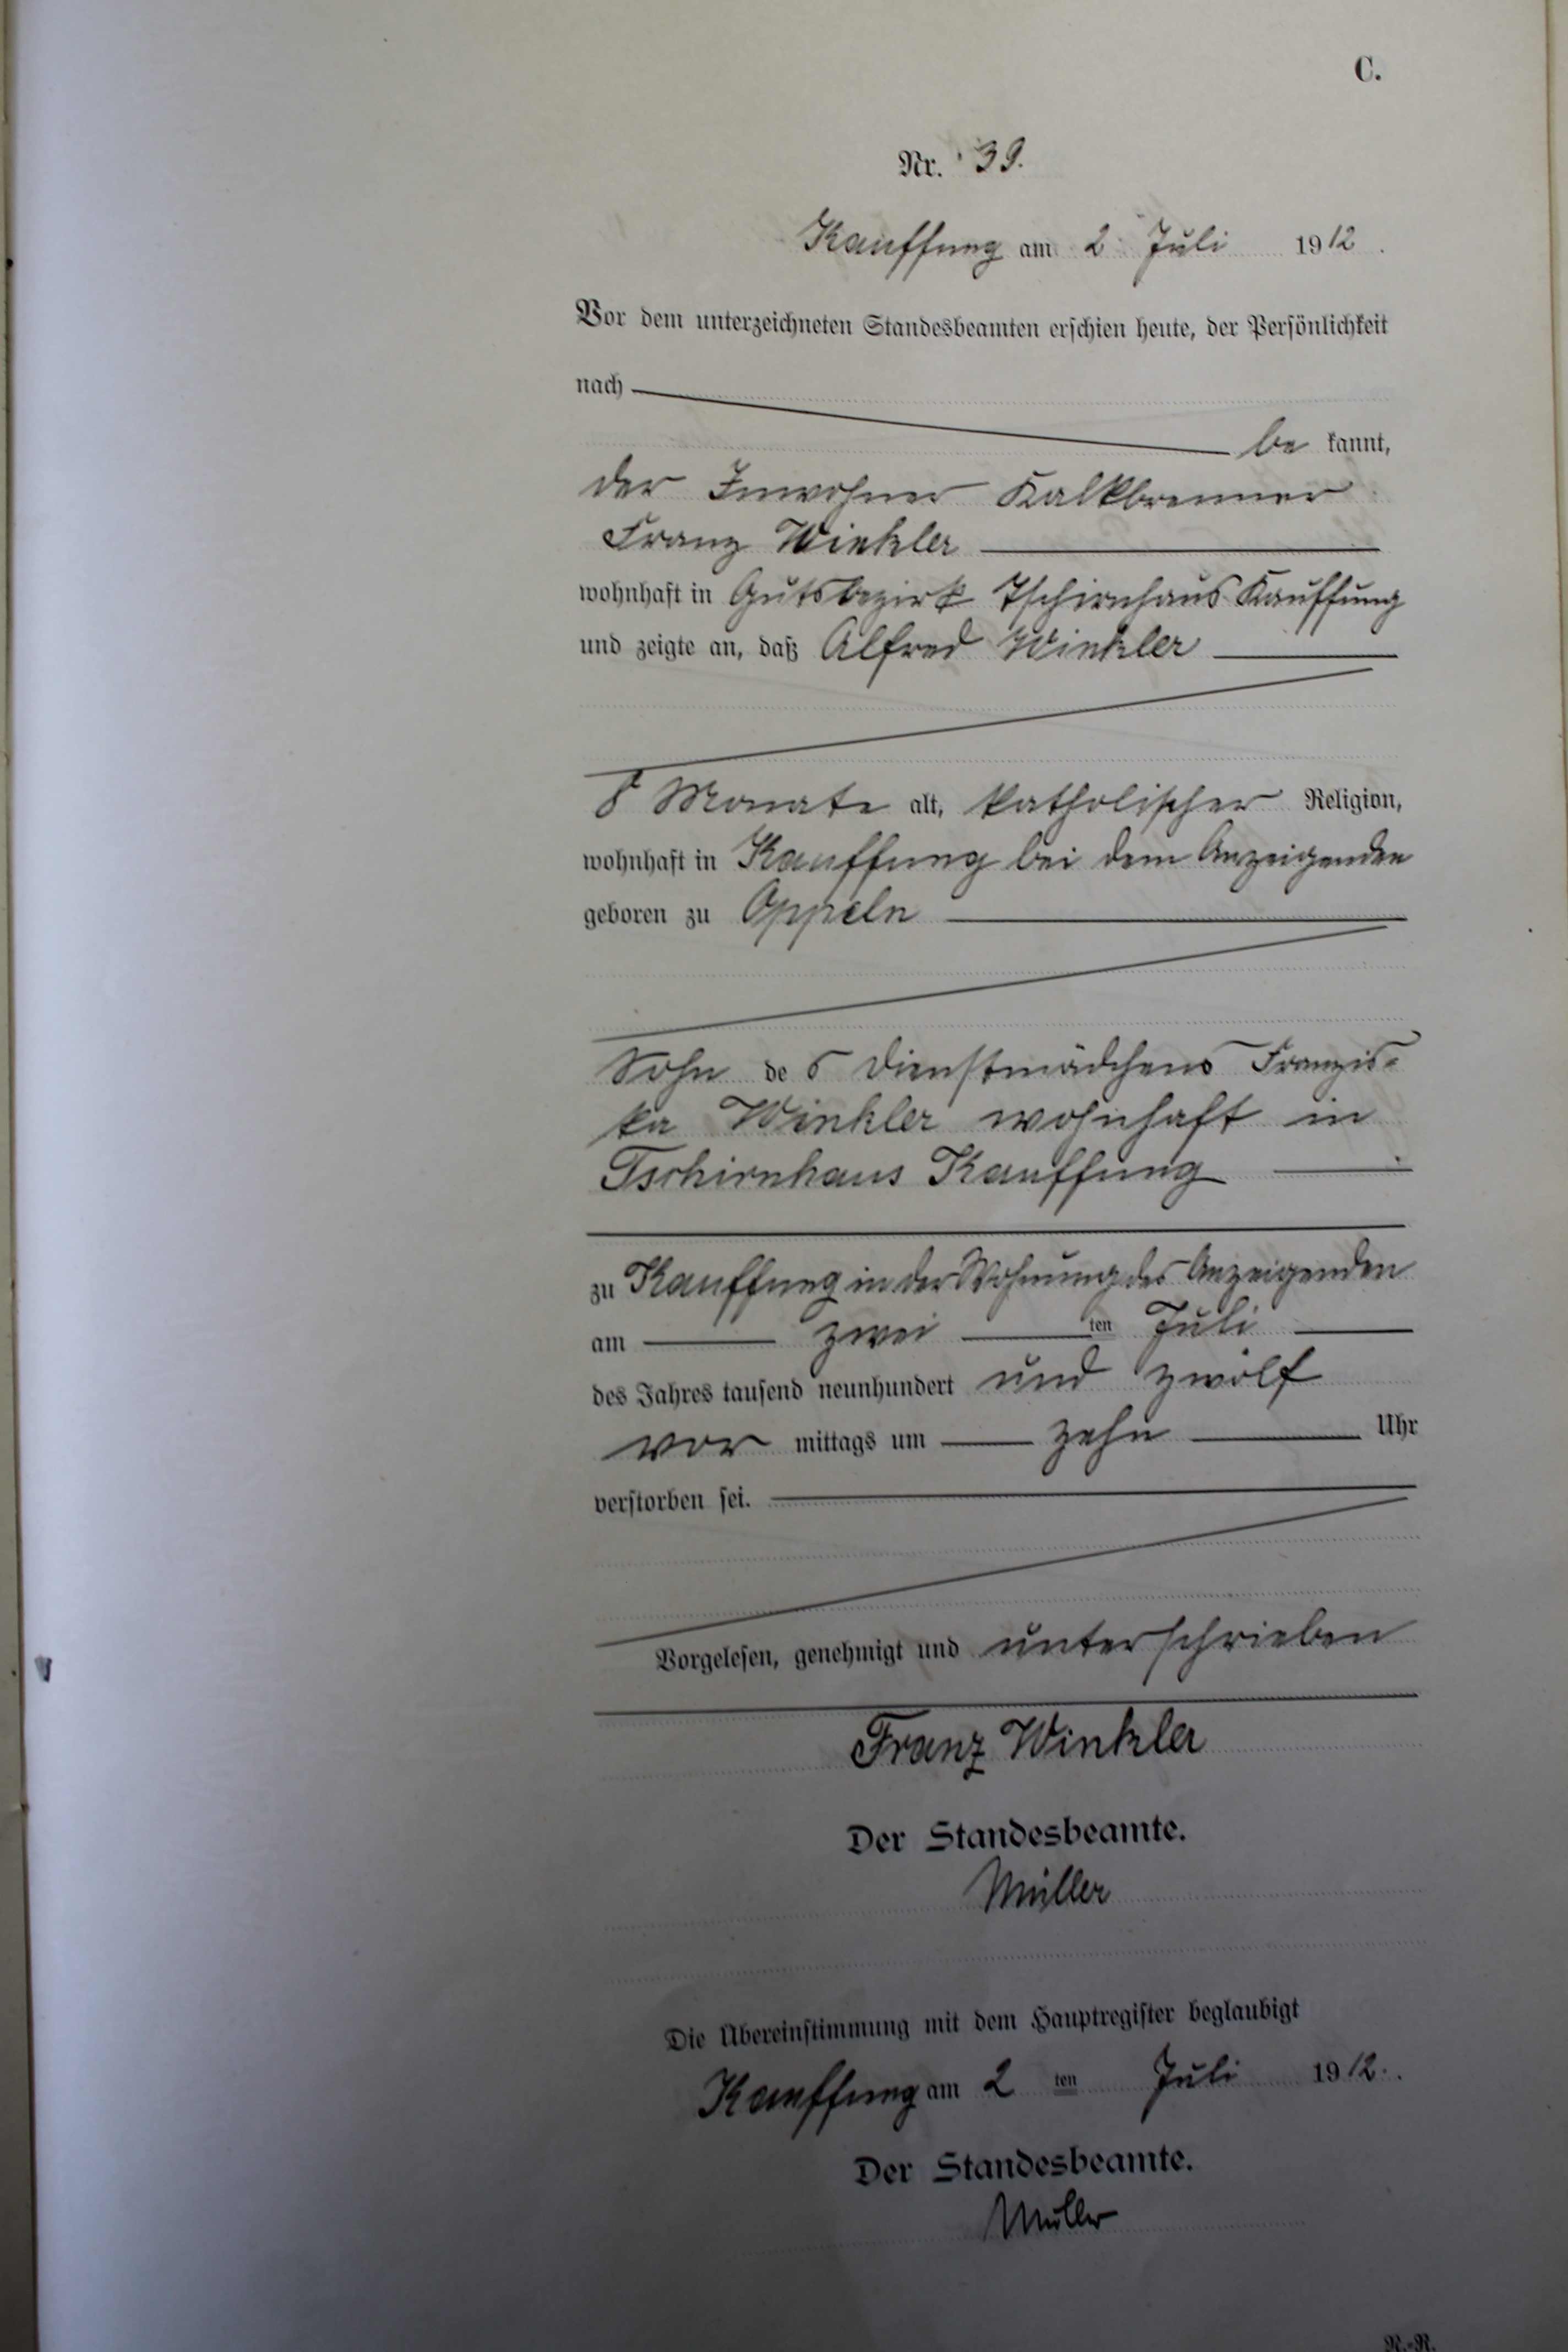 C.
Nr. 39.
Kauffung am 2. Juli 1912.
Vor dem unterzeichneten Standesbeamten erschien heute, der Persönlichkeit
nach
be kannt,
der Inwohner Kalkbrenner
Franz Winkler
wohnhaft in Gutsbezirk Tschirnhaus Kauffung
und zeigte an, daß Alfred Winkler
8 Monate alt, katholischer Religion,
wohnhaft in Kauffung bei dem Anzeigenden
geboren zu Oppeln
Sohn des Dienstmädchens Franzis-
ka Winkler wohnhaft in
Tschirnhaus Kauffung
zu Kauffung in der Wohnung des Anzeigenden
am zwei ten Juli
des Jahres tausend neunhundert und zwölf
vor mittags um zehn Uhr
verstorben sei.
Vorgelesen, genehmigt und unterschrieben
Franz Winkler
Der Standesbeamte.
Müller
Die Übereinstimmung mit dem Hauptregister beglaubigt
Kauffung am 2 ten Juli 1912.
Der Standesbeamte.
Müller
N.-R.